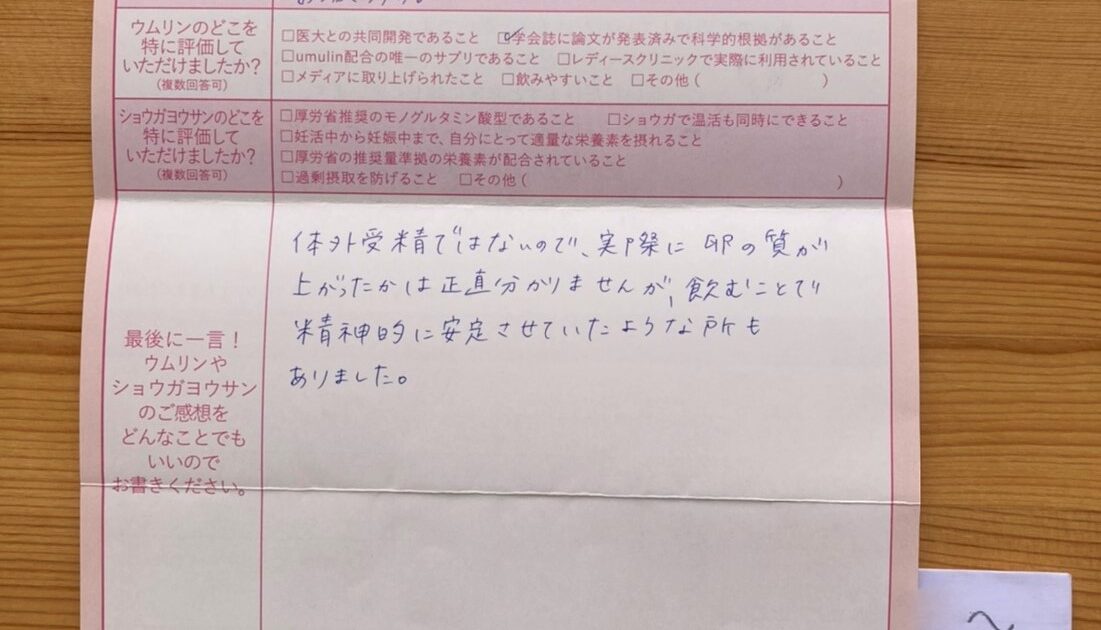 ウムリンのどこを
特に評価して
いただけましたか?
(複数回答可)
□医大との共同開発であること ☑学会誌に論文が発表済みで科学的根拠があること
□umulin配合の唯一のサプリであること □レディースクリニックで実際に利用されていること
□メディアに取り上げられたこと □飲みやすいこと □その他( )
ショウガヨウサンのどこを
特に評価して
いただけましたか?
(複数回答可)
□厚労省推奨のモノグルタミン酸型であること □ショウガで温活も同時にできること
□妊活中から妊娠中まで、自分にとって適量な栄養素を摂れること
□厚労省の推奨量準拠の栄養素が配合されていること
□過剰摂取を防げること □その他( )
最後に一言!
ウムリンや
ショウガヨウサン
のご感想を
どんなことでも
いいので
お書きください。
体外受精ではないので、実際に卵の質が
上がったかは正直分かりませんが、飲むことで
精神的に安定させていたような所も
ありました。